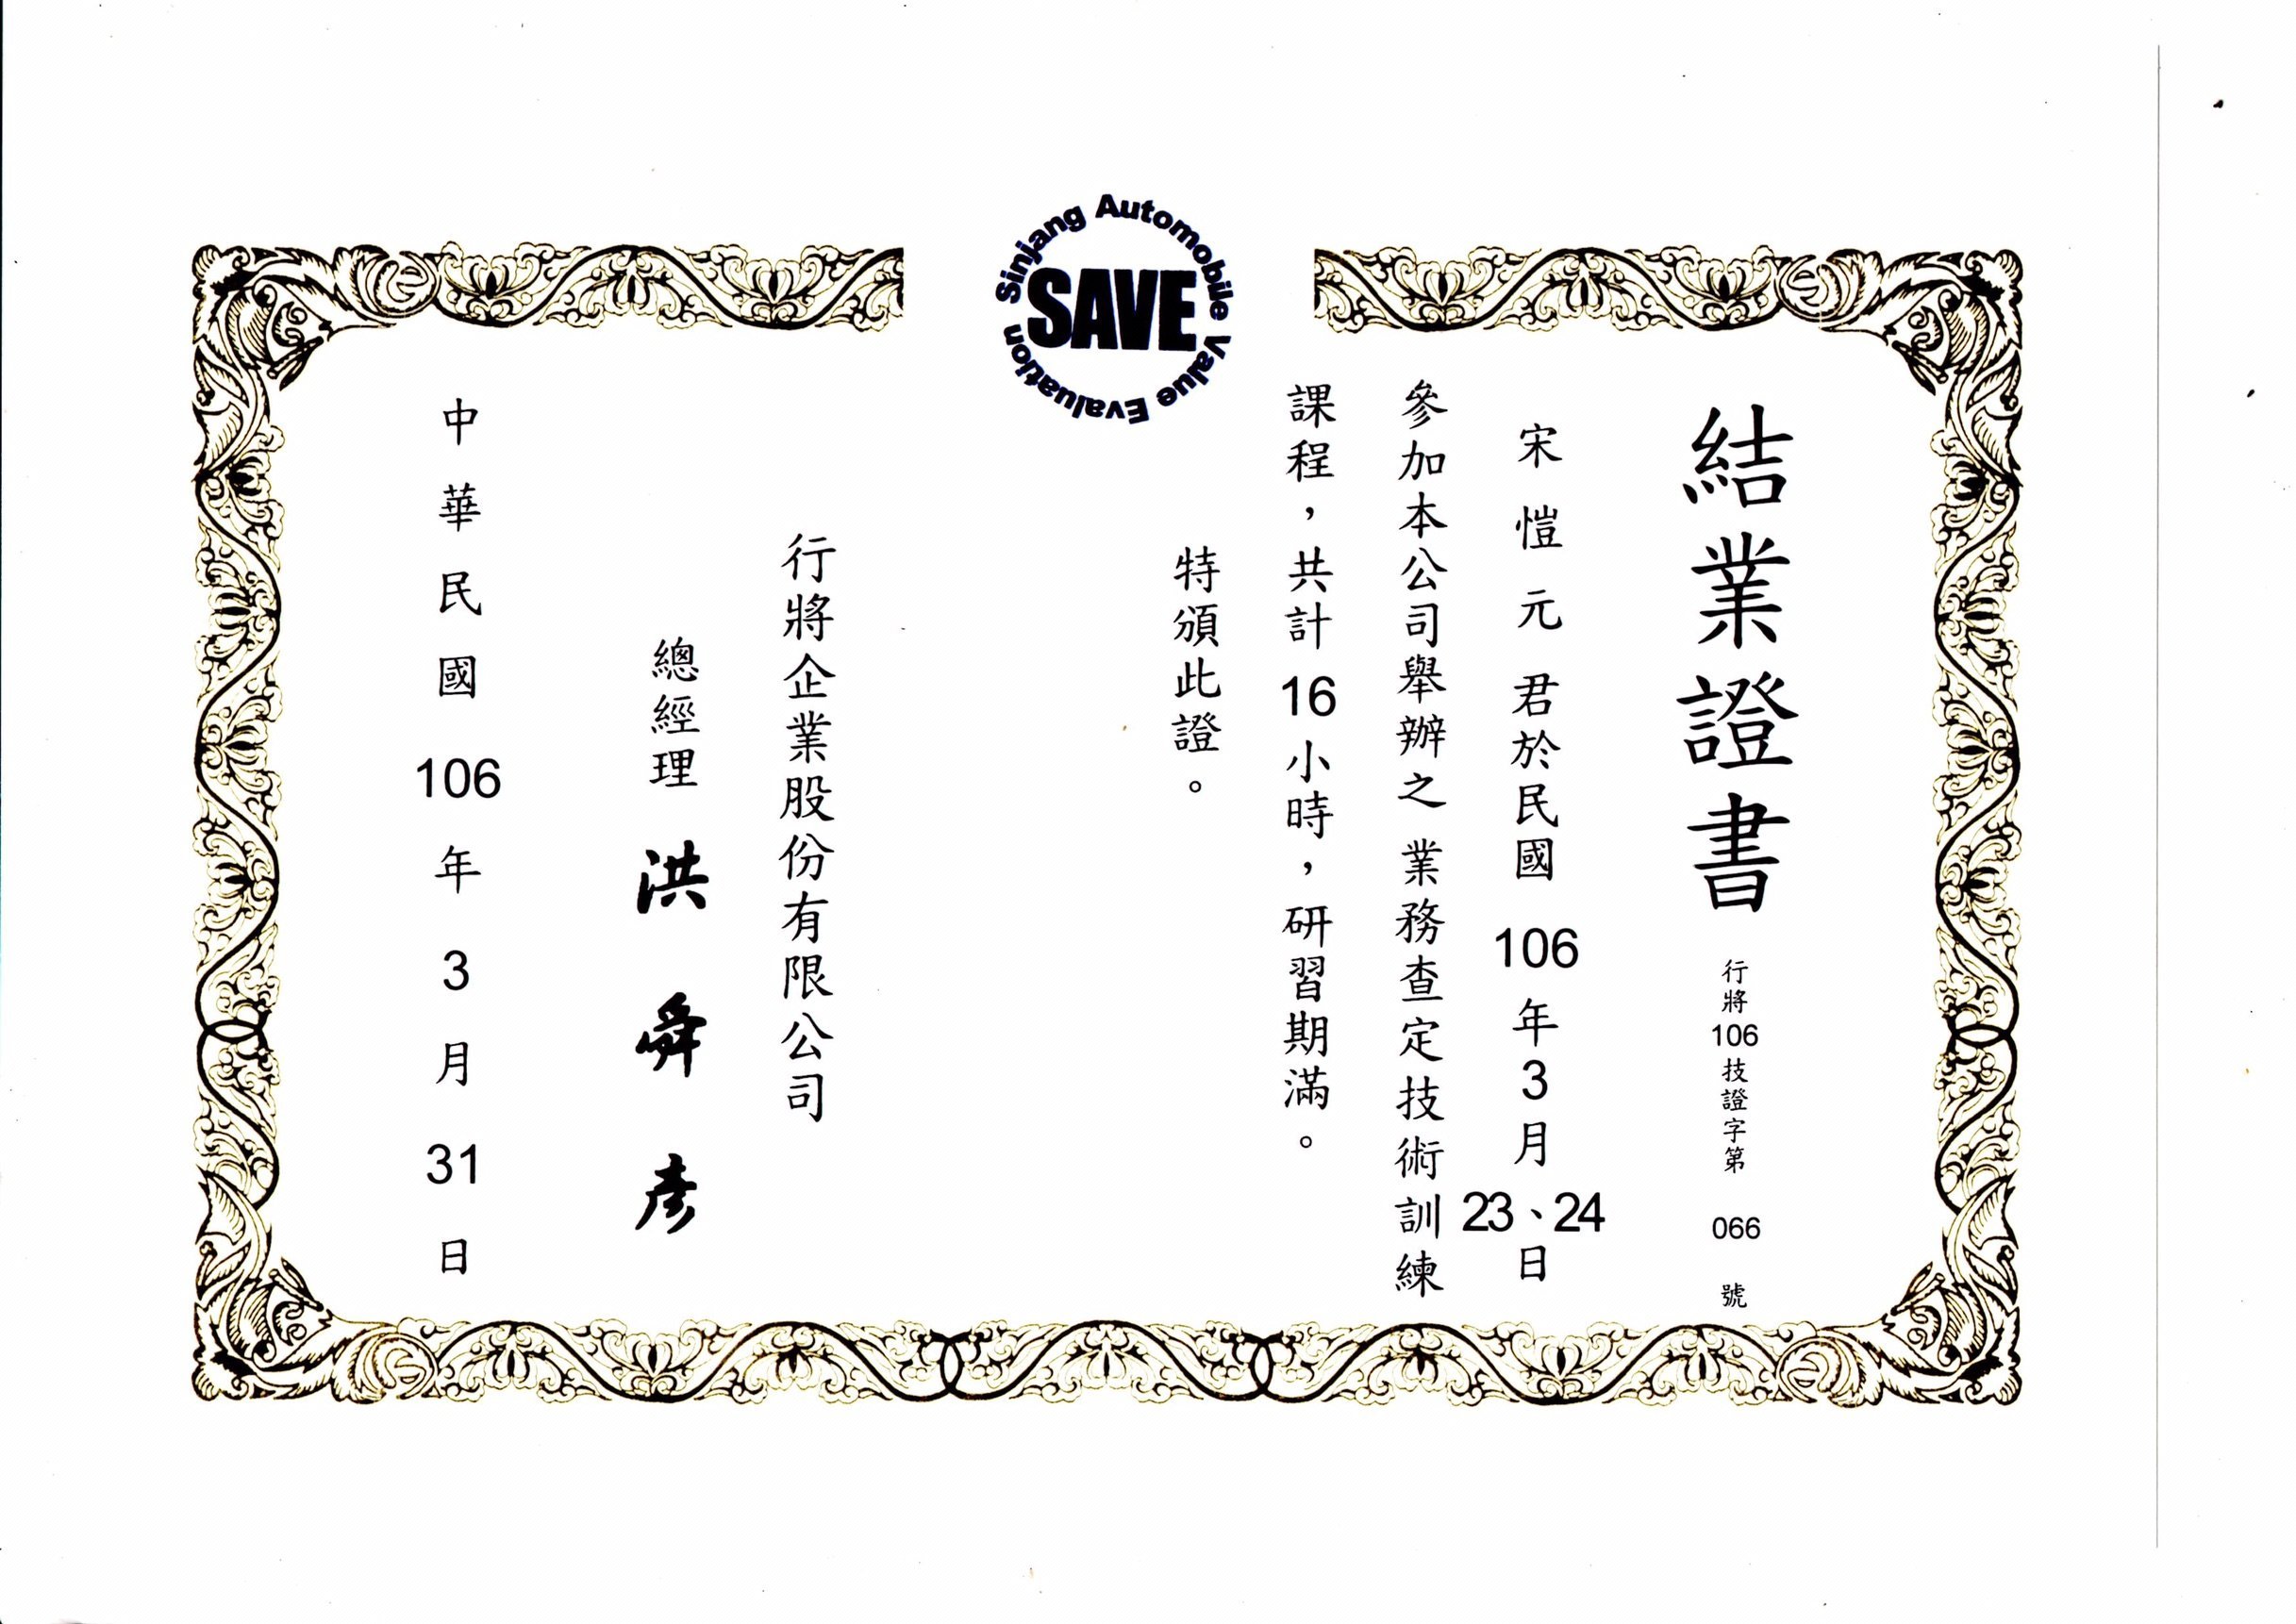 Sinjang Automobile Value Evaluation
SAVE
結業證書
行將106技證字第 066 號
宋愷元 君於民國 106 年 3 月 23、24 日
參加本公司舉辦之 業務查定技術訓練
課程，共計 16 小時，研習期滿。
特頒此證。
行將企業股份有限公司
總經理 洪舜彥
中華民國 106 年 3 月 31 日